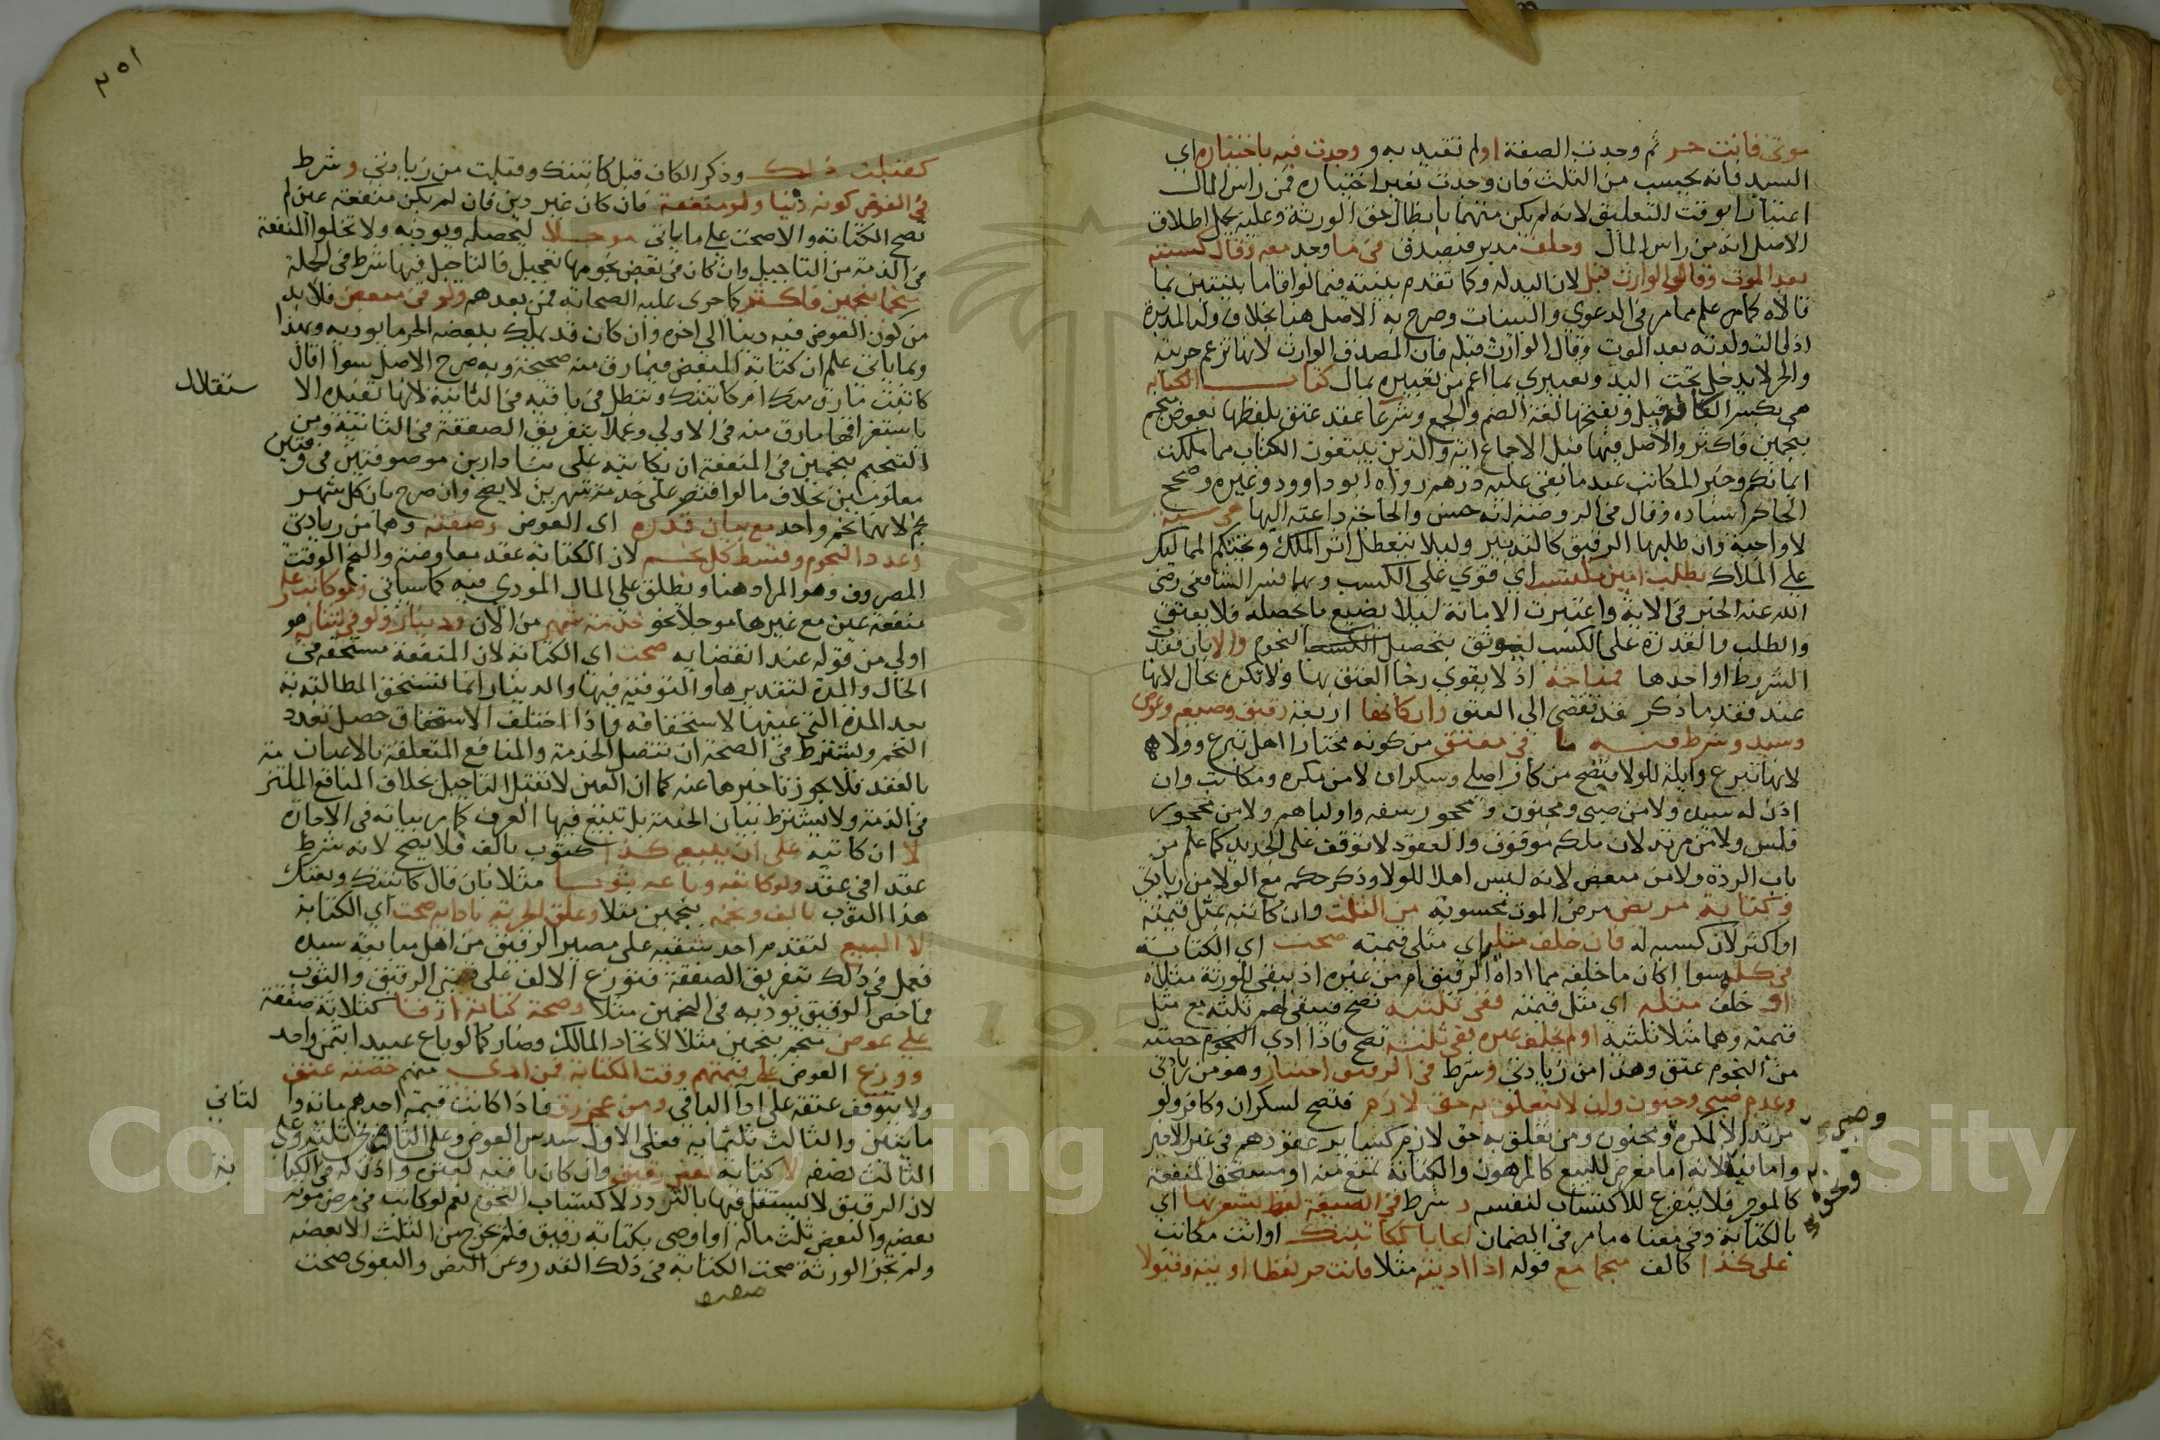 موتي فانت حر ثم وجدت الصفة او لم تقيد به و وجدت فيه باختياره اي
السيد فانه يحسب من الثلث فان وجدت بغير اختياره فمن راس المال
اعتبارا بوقت التعليق لانه لم يكن متهما بابطال حق الورثة وعليه يحمل اطلاق
الاصل انه من راس المال وحلف مدبر فيصدق في ما وجد معه وقال كسبته
بعد الموت وقال الوارث قبل لان اليد له وكما تقدم بينته فيما لو اقاما بينتين بما
قالاه كما مر علم مما مر في الدعوي والبينات وصرح به الاصل هنا بخلاف ولد المدبرة
اذا قالت ولدته بعد الموت وقال الوارث قبله فان المصدق الوارث لانها تزعم حريته
والحر لا يدخل تحت اليد وتعبيري بما اعم من تعبيره بمال كتاب الكتابة
هي بكسر الكاف وقيل وبفتحها لغة الضم والجمع وشرعا عقد عتق بلفظها بعوض منجم
بنجمين فاكثر والاصل فيها قبل الاجماع اية والذين يبتغون الكتاب مما ملكت
ايمانكم وخبر المكاتب عبد ما بقي عليه درهم رواه ابو داوود وغيره وصحح
الحاكم اسناده وقال في الروضة انه حسن والحاجة داعية اليها هي سنة
لا واجبة وان طلبها الرقيق كالتدبير وليلا يتعطل اثر الملك وتحتكم المماليك
على الملاك بطلب امين مكتسب اي قوي على الكسب وبهما فسر الشافعي رضي
الله عنه الخير في الاية واعتبرت الامانة ليلا يضيع ما يحصله فلا يعتق
والطلب والقدرة على الكسب ليوثق بتحصيل النجوم والا بان فقدت
الشروط او احدها فمباحة اذ لا يقوي رجا العتق بها ولا تكره بحال لانها
عند فقد ما ذكر قد تفضي الى العتق واركانها اربعة رقيق وصيغة وعوض
وسيد وشرط فيه ما في معتق من كونه مختارا اهل تبرع وولاء
لانها تبرع وايلة للولا فتصح من كافر اصلي وسكران لا من مكره ومكاتب وان
اذن له سيده ولا من صبي ومجنون ومحجور سفه واوليا هم ولا من محجور
فلس ولا من مرتد لان ملكه موقوف والعقود لا توقف على الجديد كما علم من
باب الردة ولا من مبعض لانه ليس اهلا للولا وذكر حكمه مع الولا من زيادتي
وكتابة مريض مرض الموت محسوبة من الثلث وان كاتبه بمثل قيمته
او اكثر لان كسبه له فان خلف مثليه اي مثلي قيمته صحت اي الكتابة
في كله سوا اكان ما خلفه مما اداه الرقيق ام من غيره اذ يبقى للورثة مثلاه
او خلف مثله اي مثل قيمته ففي ثلثيه تصح فيبقى لهم ثلثه مع مثل
قيمته وهما مثلا ثلثيه او لم يخلف غيره ففي ثلثه تصح فاذا ادي حصته
من النجوم عتق وهذا من زيادتي وشرط في الرقيق اختيار وهو من زيادتي
وعدم صبي وجنون وان لا يتعلق به حق لازم فتصح لسكران وكافر ولو
مرتدا لا لمكره ومجنون ومن تعلق به حق لازم كسائر عقودهم في غير الاخير
وصبي
واما فيه فلانه اما معرض للبيع كالمرهون والكتابة تمنع منه او مستحق المنفعة
ونحوه
كالموجر فلا يتفرغ للاكتساب لنفسه وشرط في الصيغة لفظ يشعر بها اي
بالكتابة وفي معناه ما مر في الضمان ايجابا ككاتبتك او انت مكاتب
على كذا كالف منجما مع قوله اذا اديته مثلا فانت حر لفظا او نية وقبولا
٢٥١
كقبلت ذلك وذكر الكاف قبل كاتبتك وقبلت من زيادتي وشرط
في العوض كونه دينا ولو منفعة فان كان غير دين فان لم يكن منفعة عين لم
تصح الكتابة والا صحت على ما ياتي موجلا ليحصله ويوديه ولا تخلوا المنفعة
في الذمة من التاجيل وان كان في بعض نجومها تعجيل فالتاجيل فيها شرط في الجملة
منجما بنجمين فاكثر كما جرى عليه الصحابة فمن بعدهم ولو في مبعض فلا بد
من كون العوض فيه دينا الى اخره وان كان قد يملك ببعضه الحر ما يوديه وبهذا
وبما ياتي علم ان كتابة المبعض فيما رق منه صحيحة وبه صرح الاصل سوا اقال
كاتبت ما رق منك ام كاتبتك وتبطل في باقيه في الثانية لانها تفيده الا
ستقلال
باستغراقها ما رق منه في الاولى وعملا بتفريق الصفقة في الثانية ومن
التنجيم بنجمين في المنفعة ان يكاتبه على بنا دارين موصوفتين في وقتين
معلومين بخلاف ما لو اقتصر على خدمة شهرين لا يصح وان صرح بان كل شهر
نجم لانهما نجم واحد مع بيان قدره اي العوض وصفته وهما من زيادتي
وعدد النجوم وقسط كل نجم لان الكتابة عقد معاوضة والنجم الوقت
المضروب وهو المراد هنا ويطلق على المال المودي فيه كما سياتي ولو كاتب على
منفعة عين مع غيرها موجلا نحو خدمة شهر من الان ودينار ولو في اثنائه هو
اولى من قوله عند انقضايه صحت اي الكتابة لان المنفعة مستحقة في
الحال والمدة لتقديرها والتوفية فيها والدينار انما تستحق المطالبة به
بعد المدة التي عينها لاستحقاقه واذا اختلف الاستحقاق حصل تعدد
النجم ويشترط في الصحة ان تتصل الخدمة والمنافع المتعلقة بالاعيان منه
بالعقد فلا يجوز تاخيرها عنه كما ان العين لا تقبل التاجيل بخلاف المنافع الملتزمة
في الذمة ولا يشترط بيان الخدمة بل يتبع فيها العرف كما مر بيانه في الاجارة
لا ان كاتبه على ان يبيعه كذا كثوب بالف فلا يصح لانه شرط
عقدا في عقد ولو كاتبه وباعه ثوبا مثلا بان قال كاتبتك وبعتك
هذا الثوب بالف ونجمه بنجمين مثلا وعلق الحرية بادايه صحت اي الكتابة
لا البيع لتقدم احد شقيه على مصير الرقيق من اهل مبايعة سيده
فعمل في ذلك بتفريق الصفقة فيوزع الالف على قيمتي الرقيق والثوب
فما خص الرقيق يوديه في النجمين مثلا وصحة كتابة ارقا كثلاثة صفقة
على عوض منجم بنجمين مثلا لاتحاد المالك وصار كما لو باع عبيدا بثمن واحد
ووزع العوض على قيمتهم وقت الكتابة فمن ادى منهم حصته عتق
ولا يتوقف عتقه على ادا الباقي ومن عجز رق فاذا كانت قيمة احدهم ماية وا
لثاني
مايتين والثالث ثلثماية فعلى الاول سدس العوض وعلى الثاني ثلثه وعلى
الثالث نصفه لا كتابة بعض رقيق وان كان باقيه لغيره واذن له في الكتا
بة
لان الرقيق لا يستقل فيها بالتردد لاكتساب النجوم نعم لو كاتب في مرض موته
بعضه والبعض ثلث ماله او اوصى بكتابة رقيق فلم يخرج من الثلث الا بعضه
ولم تجز الورثة صحت الكتابة في ذلك القدر وعن النص والبغوي صحت
Copyright © King Saud University